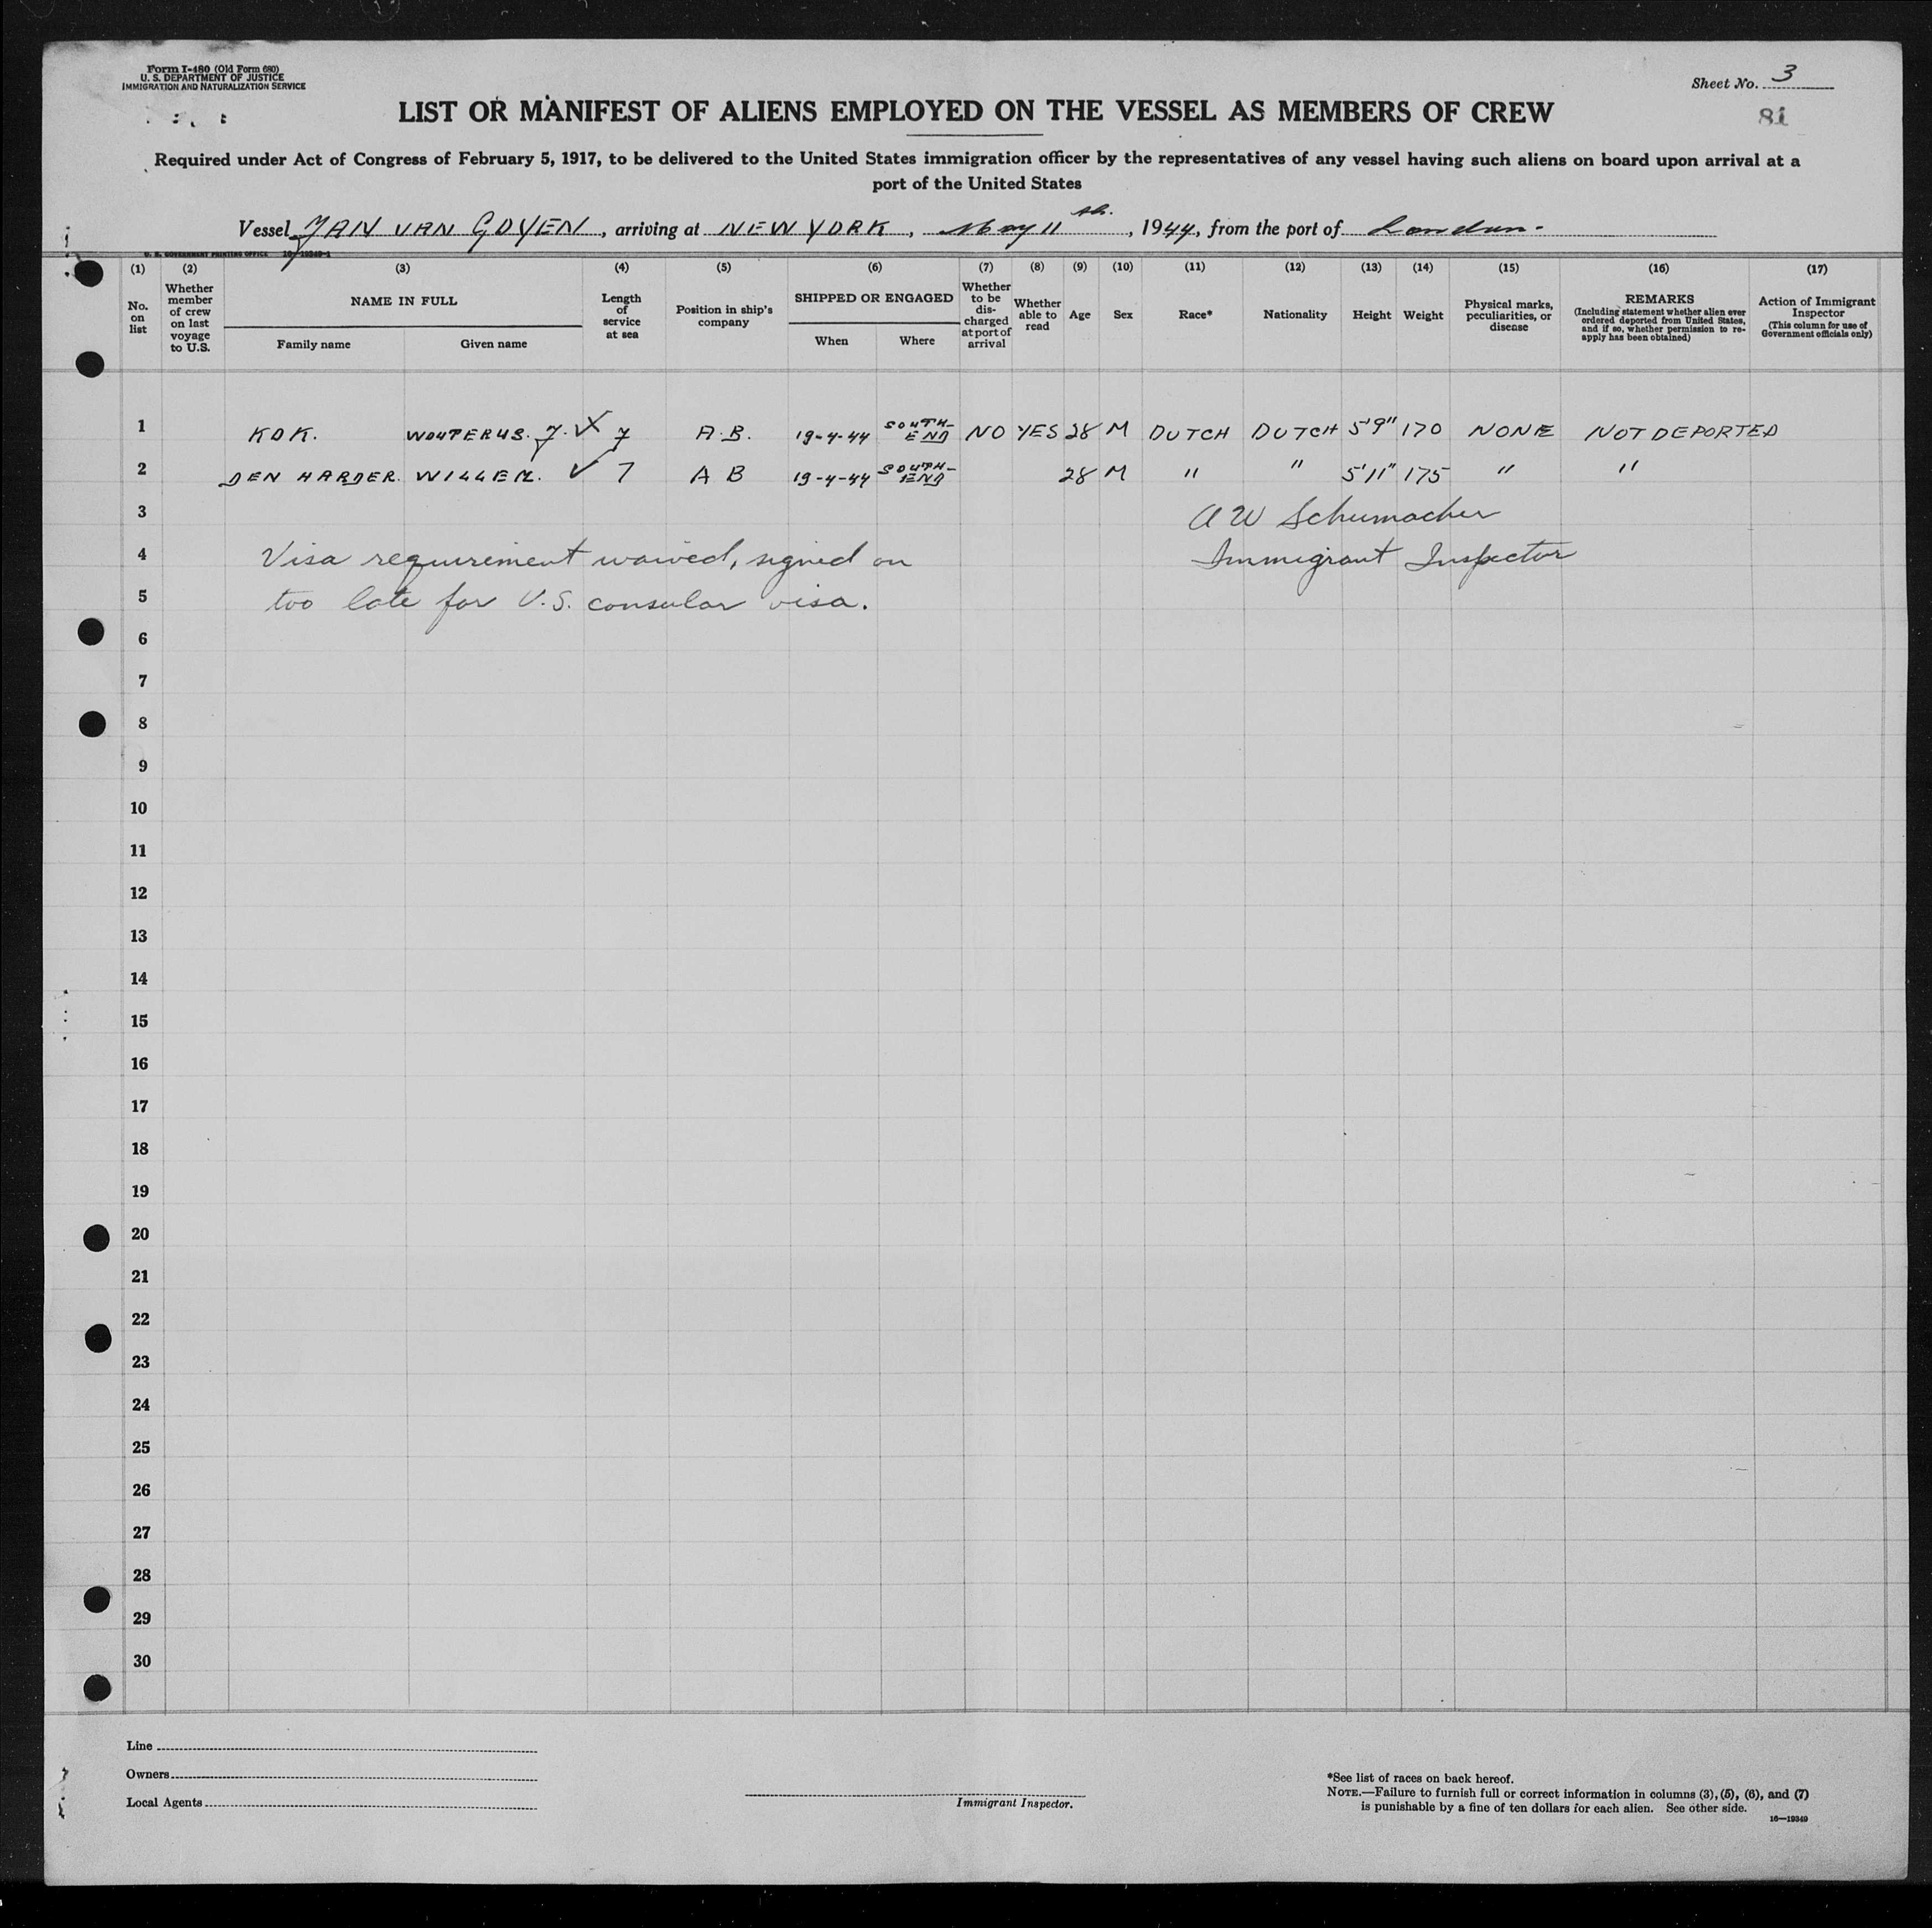 Form I-480 (Old Form 680)
U. S. DEPARTMENT OF JUSTICE
IMMIGRATION AND NATURALIZATION SERVICE
Sheet No. 3
81
LIST OR MANIFEST OF ALIENS EMPLOYED ON THE VESSEL AS MEMBERS OF CREW
Required under Act of Congress of February 5, 1917, to be delivered to the United States immigration officer by the representatives of any vessel having such aliens on board upon arrival at a
port of the United States
Vessel JAN VAN GOYEN, arriving at NEW YORK, May 11th., 1944, from the port of London.
U. S. GOVERNMENT PRINTING OFFICE 16-19349-1
(1) No. on list
(2) Whether member of crew on last voyage to U.S.
(3) NAME IN FULL
Family name
Given name
(4) Length of service at sea
(5) Position in ship's company
(6) SHIPPED OR ENGAGED
When
Where
(7) Whether to be discharged at port of arrival
(8) Whether able to read
(9) Age
(10) Sex
(11) Race*
(12) Nationality
(13) Height
(14) Weight
(15) Physical marks, peculiarities, or disease
(16) REMARKS (Including statement whether alien ever ordered deported from United States, and if so, whether permission to re-apply has been obtained)
(17) Action of Immigrant Inspector (This column for use of Government officials only)
1 KOK. WOUTERUS. J. 7 A.B. 19-4-44 SOUTH-END NO YES 28 M DUTCH DUTCH 5'9" 170 NONE NOT DEPORTED
2 DEN HARDER. WILLEM. 7 A B 19-4-44 SOUTH-END 28 M " " 5'11" 175 " "
3 A W Schumacher
4 Visa requirement waived, signed on Immigrant Inspector
5 too late for U.S. consular visa.
6
7
8
9
10
11
12
13
14
15
16
17
18
19
20
21
22
23
24
25
26
27
28
29
30
Line
Owners
Local Agents
Immigrant Inspector.
*See list of races on back hereof.
NOTE.—Failure to furnish full or correct information in columns (3), (5), (6), and (7)
is punishable by a fine of ten dollars for each alien. See other side.
16—19349